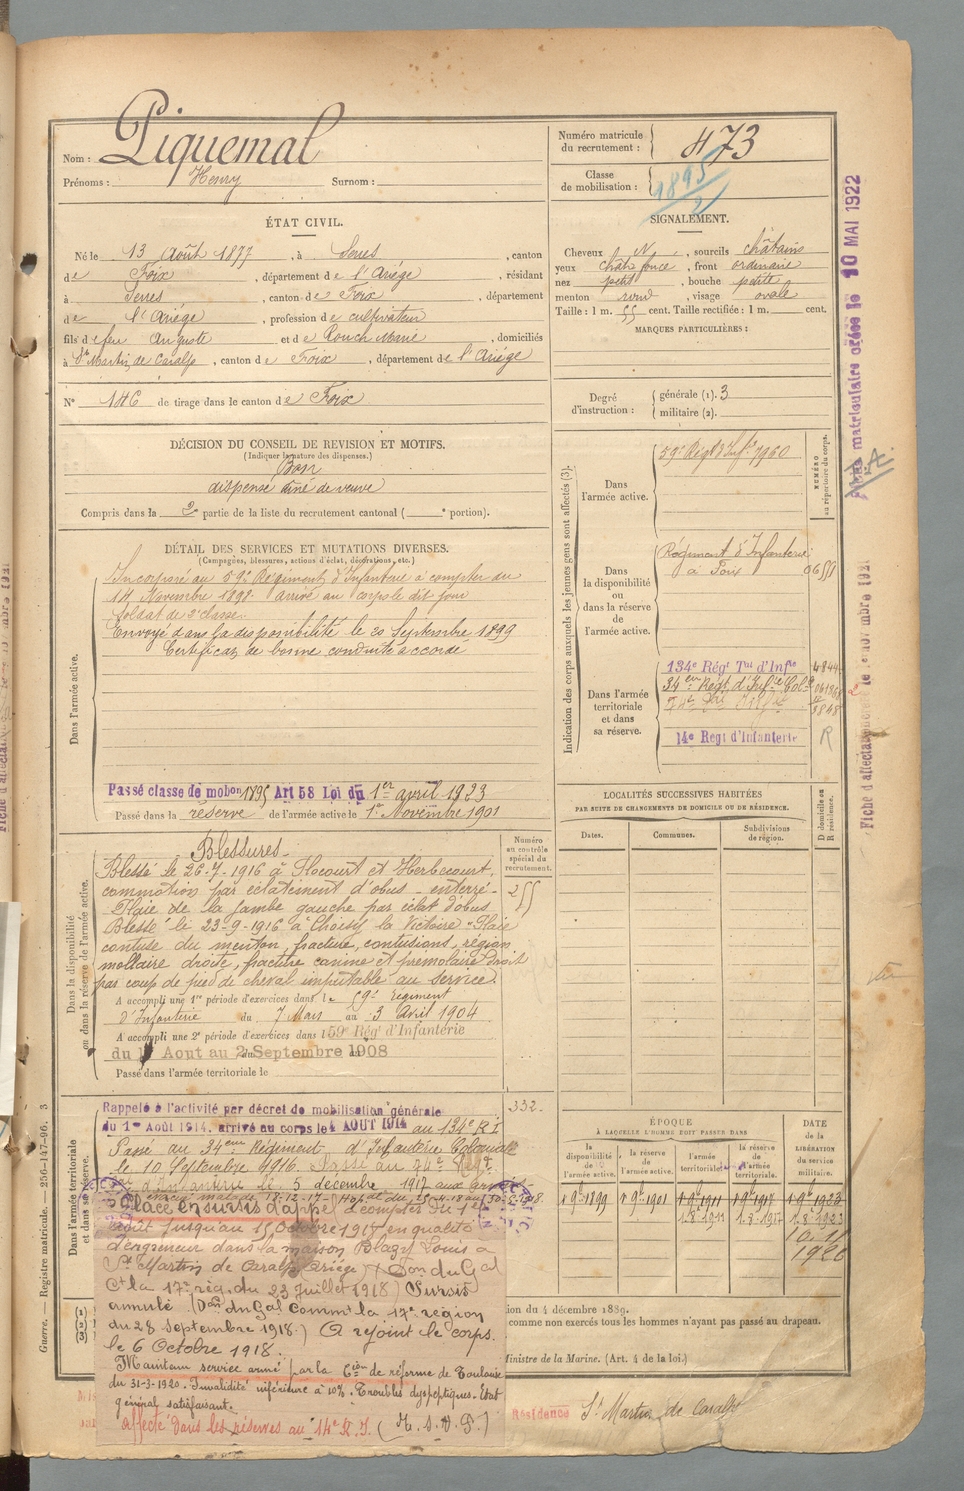 Nom : Piquemal
Prénoms : Henry Surnom :
Numéro matricule
du recrutement : 473
Classe
de mobilisation : 1895/2
ÉTAT CIVIL.
Né le 13 Août 1877, à Serres, canton
de Foix, département de l'Ariège, résidant
à Serres, canton de Foix, département
de l'Ariège, profession de cultivateur
fils de feu Auguste et de Rouch Marie, domiciliés
à St Martin de Caralp, canton de Foix, département de l'Ariège
N° 146 de tirage dans le canton de Foix
SIGNALEMENT.
Cheveux N, sourcils châtains
yeux chât. foncé, front ordinaire
nez petit, bouche petite
menton rond, visage ovale
Taille : 1 m. 55 cent. Taille rectifiée : 1 m. cent.
MARQUES PARTICULIÈRES :
Degré
d'instruction :
générale (1). 3
militaire (2).
DÉCISION DU CONSEIL DE REVISION ET MOTIFS.
(Indiquer la nature des dispenses.)
Bon
dispensé aîné de veuve
Compris dans la 2e partie de la liste du recrutement cantonal ( e portion).
DÉTAIL DES SERVICES ET MUTATIONS DIVERSES.
(Campagnes, blessures, actions d'éclat, décorations, etc.)
Dans l'armée active.
Incorporé au 59e Régiment d'Infanterie à compter du
14 Novembre 1898 arrivé au corps le dit jour
soldat de 2e classe.
Envoyé dans la disponibilité le 20 Septembre 1899
Certificat de bonne conduite accordé
Passé classe de mobon 1895 Art 58 Loi du 1er avril 1923
Passé dans la réserve de l'armée active le 1er Novembre 1901
Indication des corps auxquels les jeunes gens sont affectés (3).
NUMÉRO
au répertoire du corps.
Dans
l'armée active.
59e Régt d'Infie 7960
Dans
la disponibilité
ou
dans la réserve
de
l'armée active.
Régiment d'Infanterie
à Foix 0655
Dans l'armée
territoriale
et dans
sa réserve.
134e Régt Tal d'Infie 4844
34eme Régt d'Infie Cole
14e Regt d'Infanterie R
LOCALITÉS SUCCESSIVES HABITÉES
PAR SUITE DE CHANGEMENTS DE DOMICILE OU DE RÉSIDENCE.
Dates.
Communes.
Subdivisions
de région.
D domicile ou
R résidence.
Dans la disponibilité
ou dans la réserve de l'armée active.
Numéro
au contrôle
spécial du
recrutement.
255
Blessures-
Blessé le 26-7-1916 à Flocourt et Herbecourt,
commotion par éclatement d'obus - enterré -
Plaie de la jambe gauche par éclat d'obus
Blessé le 23-9-1916 à Choisy la Victoire "Plaie
contuse du menton, fracture, contusions, région
mollaire droite, fracture canine et premolaire droit
par coup de pied de cheval imputable au service.
A accompli une 1re période d'exercices dans le 59e Régiment
d'Infanterie du 7 Mars au 3 Avril 1904
A accompli une 2e période d'exercices dans l 59e Régt d'Infanterie
du Aout au 2 Septembre 1908
Passé dans l'armée territoriale le
Dans l'armée territoriale
et dans sa réserve.
332.
Rappelé à l'activité par décret de mobilisation générale
du 1er Août 1914. arrivé au corps le 4 AOUT 1914 au 134e R I
Passé au 34eme Régiment d'Infanterie Coloniale
le 10 Septembre 1916. Passé au Régt
d'Infanterie le 5 décembre 1917 aux armées
évacué mal de 18-12-17
Placé en sursis d'appel à compter du 1er
août jusqu'au 15 Octobre 1918 en qualité
d'engreneur dans la maison Blazy Louis à
St Martin de Caralp (Ariège) (Don du Gal
Ct la 17e rég. du 23 Juillet 1918) Sursis
annulé (Don du Gal Commt la 17e région
du 28 Septembre 1918.) A rejoint le corps
le 6 Octobre 1918.
Maintenu service armé par la Cion de réforme de Toulouse
du 31-3-1920. Invalidité inférieure à 10%. Troubles dyspeptiques. Etat
général satisfaisant.
affecté dans les réserves au 14e R.I.
ÉPOQUE
À LAQUELLE L'HOMME DOIT PASSER DANS
la
disponibilité
de
l'armée active.
la réserve
de
l'armée active.
l'armée
territoriale.
la réserve
de
l'armée
territoriale.
DATE
de la
LIBÉRATION
du service
militaire.
1 9bre 1899 1 9bre 1901 1 9bre 1911 1 9bre 1917 1 9bre 1923
1.8.1911 1.8.1917 1.8.1923
ion du 4 décembre 1889.
comme non exercés tous les hommes n'ayant pas passé au drapeau.
Ministre de la Marine. (Art. 4 de la loi.)
Résidence St Martin de Caralp
Guerre. — Registre matricule. — 256-147-96. 3
Fiche matriculaire créée le 10 MAI 1922